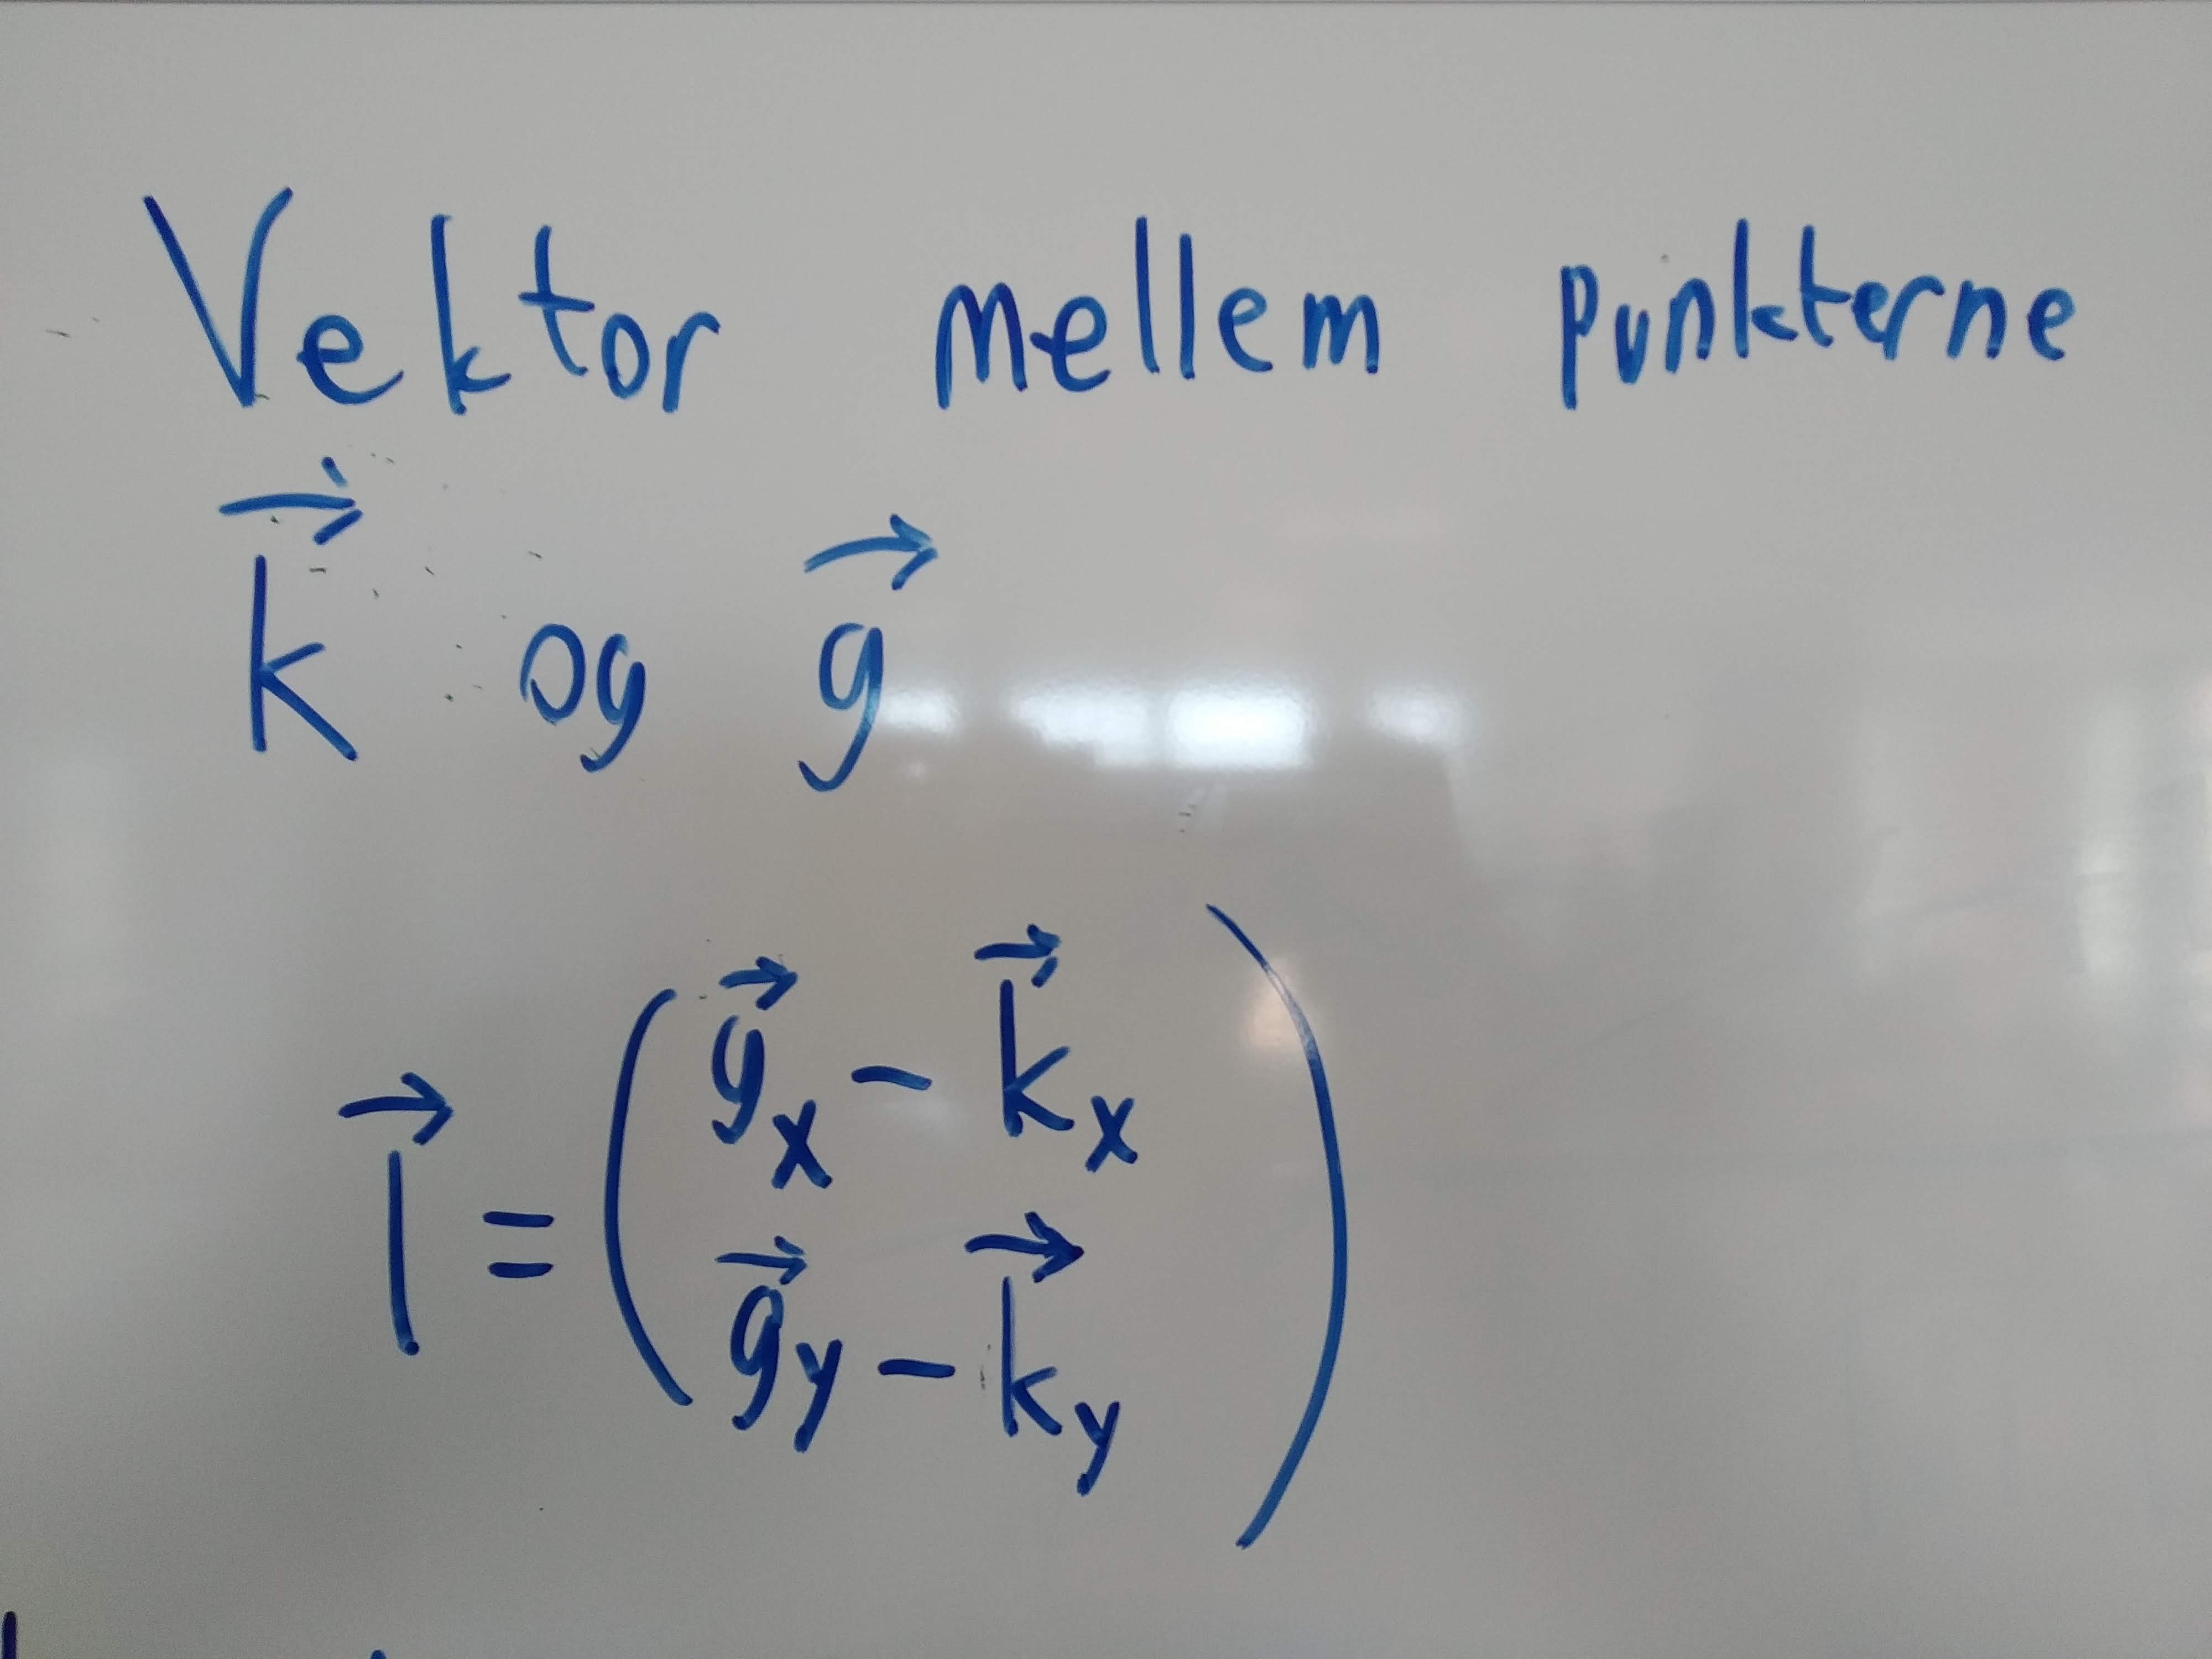 Vektor mellem punkterne
k⃗ og g⃗
l⃗ = ( g⃗x − k⃗x
g⃗y − k⃗y )